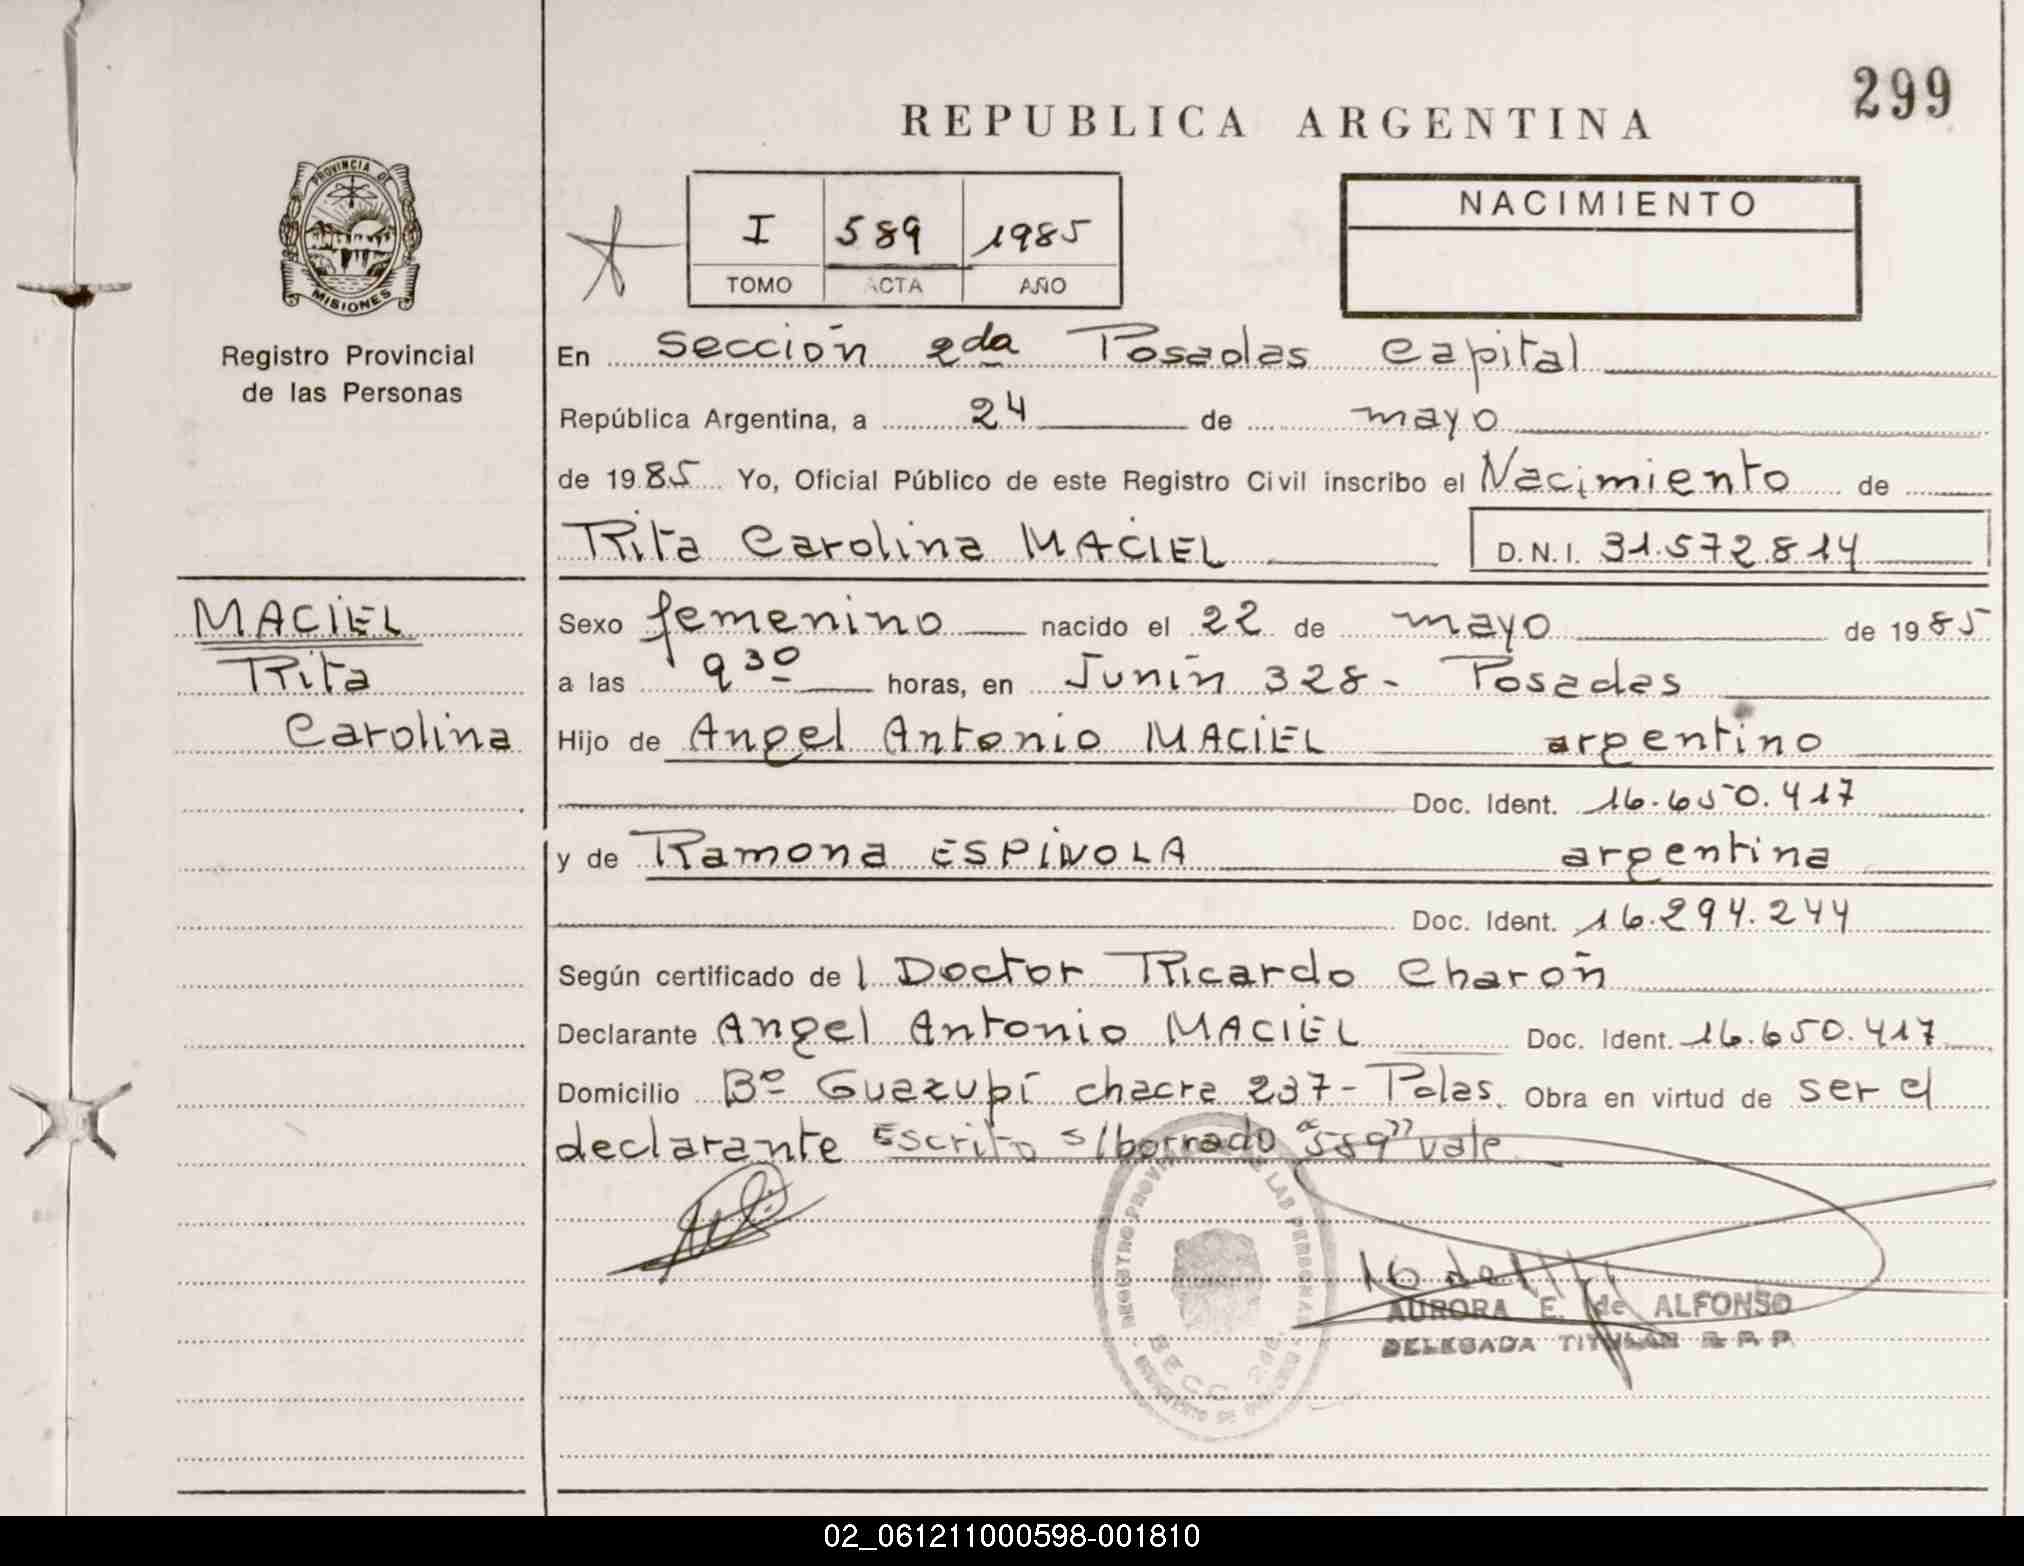 299
REPUBLICA ARGENTINA
PROVINCIA DE
MISIONES
Registro Provincial
de las Personas
I 589 1985
TOMO ACTA AÑO
NACIMIENTO
En Sección 2da Posadas Capital
República Argentina, a 24 de mayo
de 1985 Yo, Oficial Público de este Registro Civil inscribo el Nacimiento de
Rita Carolina MACIEL D.N.I. 31.572.814
MACIEL
Rita
Carolina
Sexo femenino nacido el 22 de mayo de 1985
a las 9 30 horas, en Junín 328 - Posadas
Hijo de Angel Antonio MACIEL argentino
Doc. Ident. 16.650.417
y de Ramona ESPINOLA argentina
Doc. Ident. 16.294.244
Según certificado de l Doctor Ricardo Charón
Declarante Angel Antonio MACIEL Doc. Ident. 16.650.417
Domicilio Bº Guazupí chacra 237 - Pdas. Obra en virtud de ser el
declarante Escrito s/borrado "589" vale
REGISTRO PROVINCIAL DE LAS PERSONAS
SECC. 2da.
AURORA E. de ALFONSO
DELEGADA TITULAR R. P. P.
02_061211000598-001810